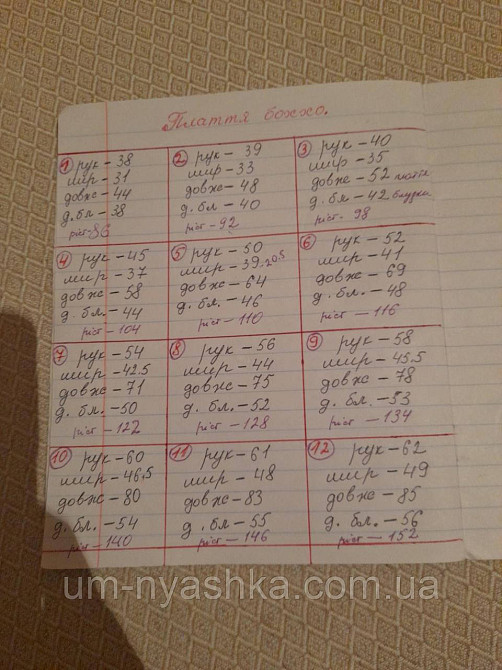 Плаття бохо.
1 рук - 38
шир - 31
довж - 44
д. бл - 38
ріст - 86
2 рук - 39
шир - 33
довж - 48
д. бл - 40
ріст - 92
3 рук - 40
шир - 35
довж - 52 плаття
д. бл - 42 блузки
ріст - 98
4 рук - 45
шир - 37
довж - 58
д. бл. - 44
ріст - 104
5 рук - 50
шир - 39
довж - 64
д. бл. - 46
ріст - 110
6 рук - 52
шир - 41
довж - 69
д. бл. - 48
ріст - 116
7 рук - 54
шир - 42.5
довж - 71
д. бл. - 50
ріст - 122
8 рук - 56
шир - 44
довж - 75
д. бл. - 52
ріст - 128
9 рук - 58
шир - 45.5
довж - 78
д. бл. - 53
ріст - 134
10 рук - 60
шир - 46,5
довж - 80
д. бл. - 54
ріст - 140
11 рук - 61
шир - 48
довж - 83
д. бл - 55
ріст - 146
12 рук - 62
шир - 49
довж - 85
д. бл. - 56
ріст - 152
um-nyashka.com.ua